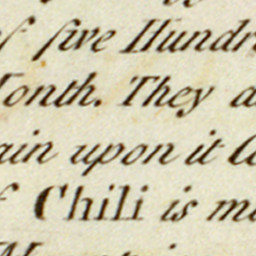 of five Hundr
Month. They a
ain upon it
f Chili is m